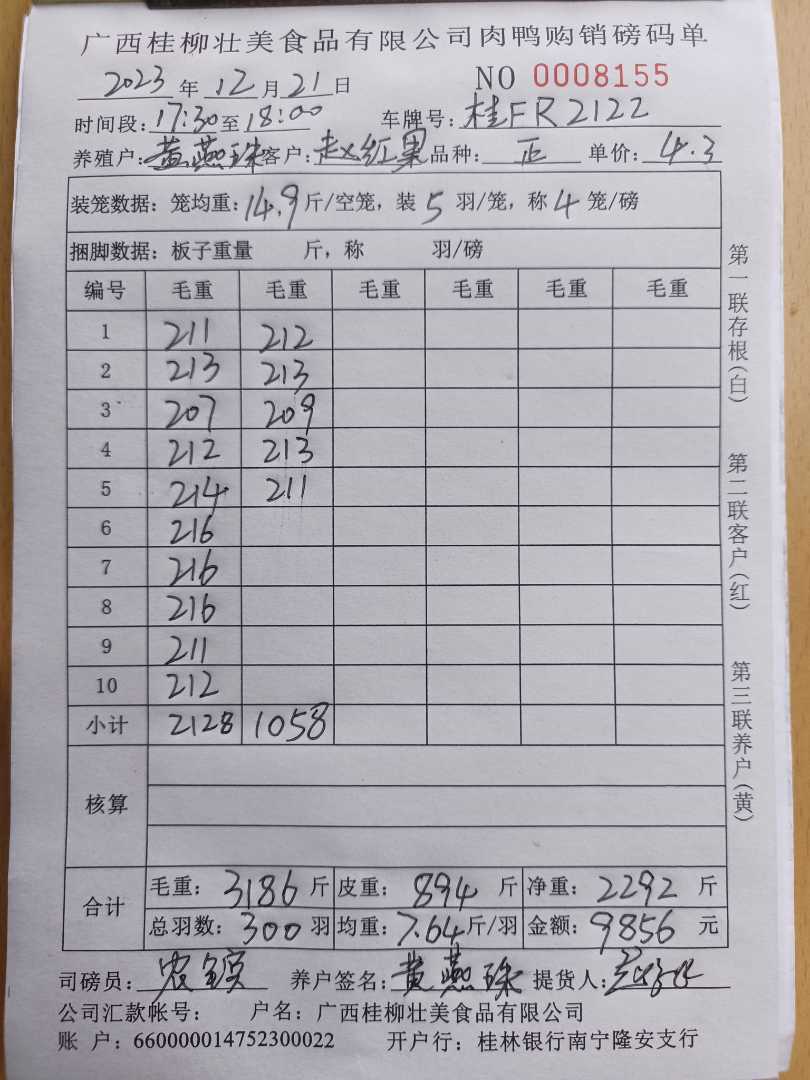 广西桂柳壮美食品有限公司肉鸭购销磅码单
2023年12月21日 NO 0008155
时间段:17:30至18:00 车牌号:桂FR2122
养殖户:黄燕珠 客户:赵红果 品种:正 单价:4.3
装笼数据:笼均重:14.9斤/空笼,装5羽/笼,称4笼/磅
捆脚数据:板子重量 斤,称 羽/磅
编号 毛重 毛重 毛重 毛重 毛重 毛重
1 211 212
2 213 213
3 207 209
4 212 213
5 214 211
6 216
7 216
8 216
9 211
10 212
小计 2128 1058
核算
合计 毛重:3186斤 皮重:894斤 净重:2292斤
总羽数:300羽 均重:7.64斤/羽 金额:9856元
司磅员: 养户签名:黄燕珠 提货人:
公司汇款帐号: 户名:广西桂柳壮美食品有限公司
账 户:660000014752300022 开户行:桂林银行南宁隆安支行
第一联存根(白) 第二联客户(红) 第三联养户(黄)